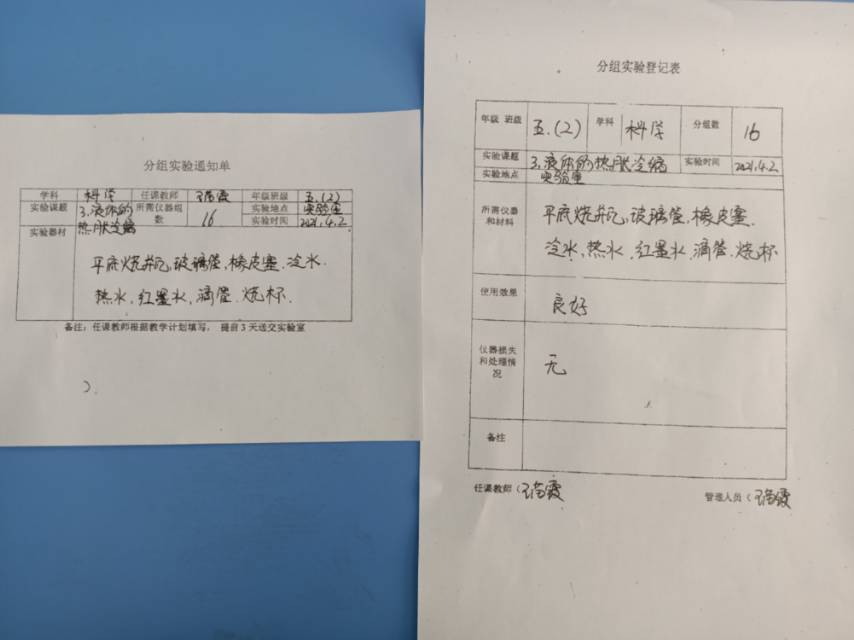 分组实验通知单
学科 科学 任课教师 王苗霞 年级班级 五.(2)
实验课题 3.液体的热胀冷缩 所需仪器组数 16 实验地点 实验室
实验时间 2021.4.2
实验器材
平底烧瓶,玻璃管,橡皮塞,冷水.
热水,红墨水,滴管.烧杯.
备注:任课教师根据教学计划填写, 提前3天送交实验室
分组实验登记表
年级 班级 五.(2) 学科 科学 分组数 16
实验课题 3.液体的热胀冷缩 实验时间 2021.4.2
实验地点 实验室
所需仪器和材料
平底烧瓶,玻璃管.橡皮塞
冷水,热水,红墨水,滴管.烧杯
使用效果 良好
仪器损失和处理情况 无
备注
任课教师( 王苗霞 管理人员( 王苗霞